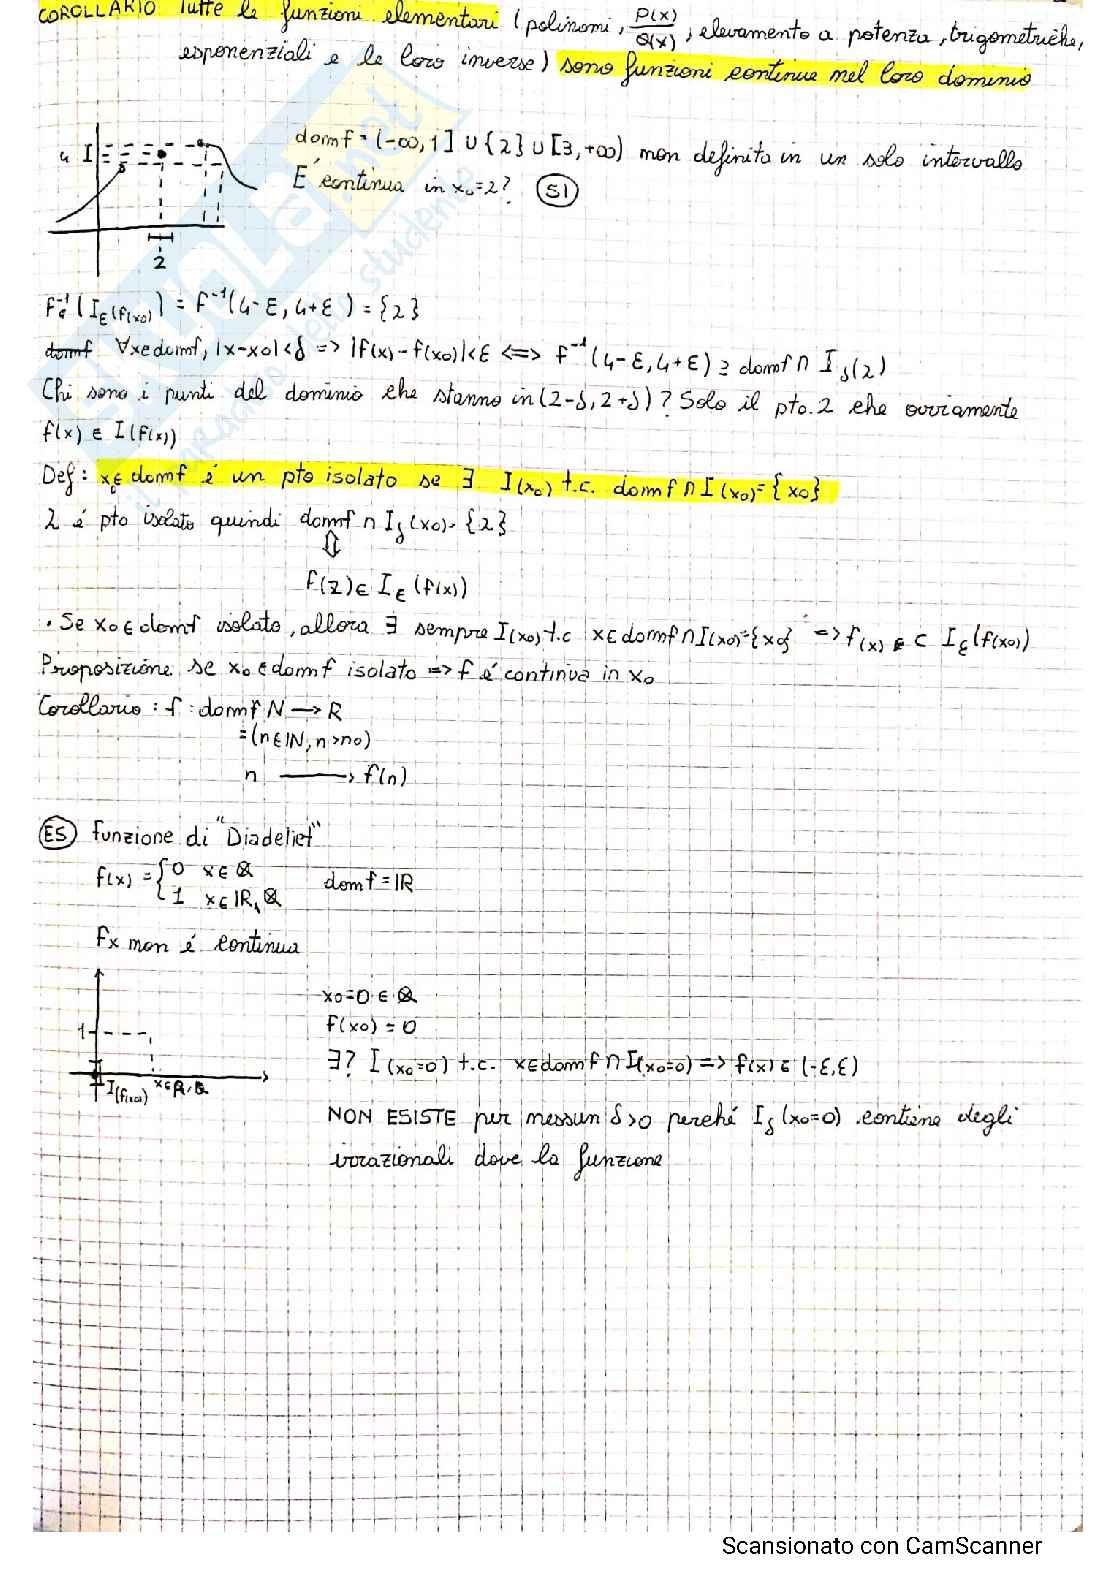 COROLLARIO Tutte le funzioni elementari (polinomi, P(x)/Q(x), elevamento a potenza, trigometriche,
esponenziali e le loro inverse) sono funzioni continue nel loro dominio
domf = (-∞,1] ∪ {2} ∪ [3,+∞) non definita in un solo intervallo
É continua in x₀=2? SI
4 I
2
(I_ε(f(x₀)) = f⁻¹(4-ε, 4+ε) = {2}
domf ∀x∈domf, |x-x₀|<δ => |f(x)-f(x₀)|<ε <=> f⁻¹(4-ε, 4+ε) ⊇ domf ∩ I_δ(2)
Chi sono i punti del dominio che stanno in (2-δ, 2+δ)? Solo il pto. 2 che ovviamente
f(x) ∈ I(f(x))
Def: x₀∈ domf é un pto isolato se ∃ I(x₀) t.c. domf ∩ I(x₀) = {x₀}
2 é pto isolato quindi domf ∩ I_δ(x₀) = {2}
⇕
f(2) ∈ I_ε(f(x))
• Se x₀∈domf isolato, allora ∃ sempre I(x₀) t.c x∈domf∩I(x₀)={x₀} => f(x) ⊂ I_ε(f(x₀))
Proposizione se x₀∈domf isolato => f é continua in x₀
Corollario: f: domf N → R
=(n∈ℕ, n>n₀)
n → f(n)
ES funzione di "Diadeliet"
f(x) = { 0 x∈ℚ domf = ℝ
1 x∈ℝ\ℚ
fx non é continua
x₀=0∈ℚ
f(x₀)=0
1
∃? I(x₀=0) t.c. x∈domf ∩ I(x₀=0) => f(x)∈(-ε,ε)
I(f(x₀)) x∈ℝ\ℚ
NON ESISTE per nessun δ>0 perché I_δ(x₀=0) contiene degli
irrazionali dove la funzione
Scansionato con CamScanner